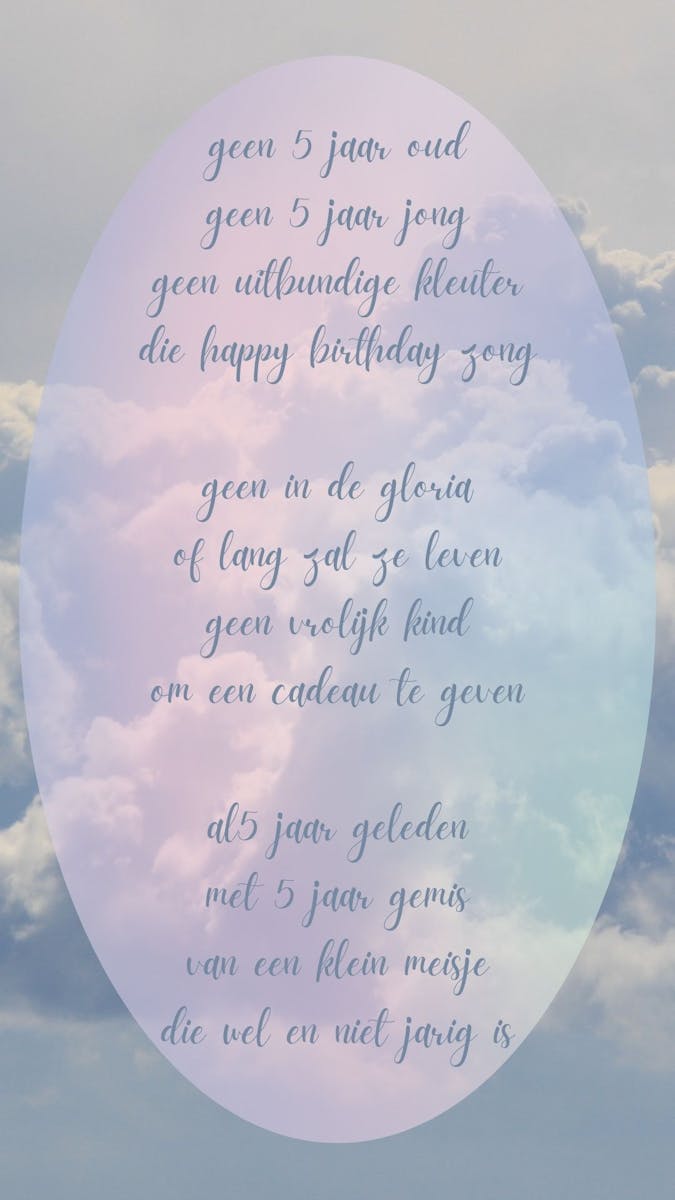 geen 5 jaar oud
geen 5 jaar jong
geen uitbundige kleuter
die happy birthday zong
geen in de gloria
of lang zal ze leven
geen vrolijk kind
om een cadeau te geven
al5 jaar geleden
met 5 jaar gemis
van een klein meisje
die wel en niet jarig is